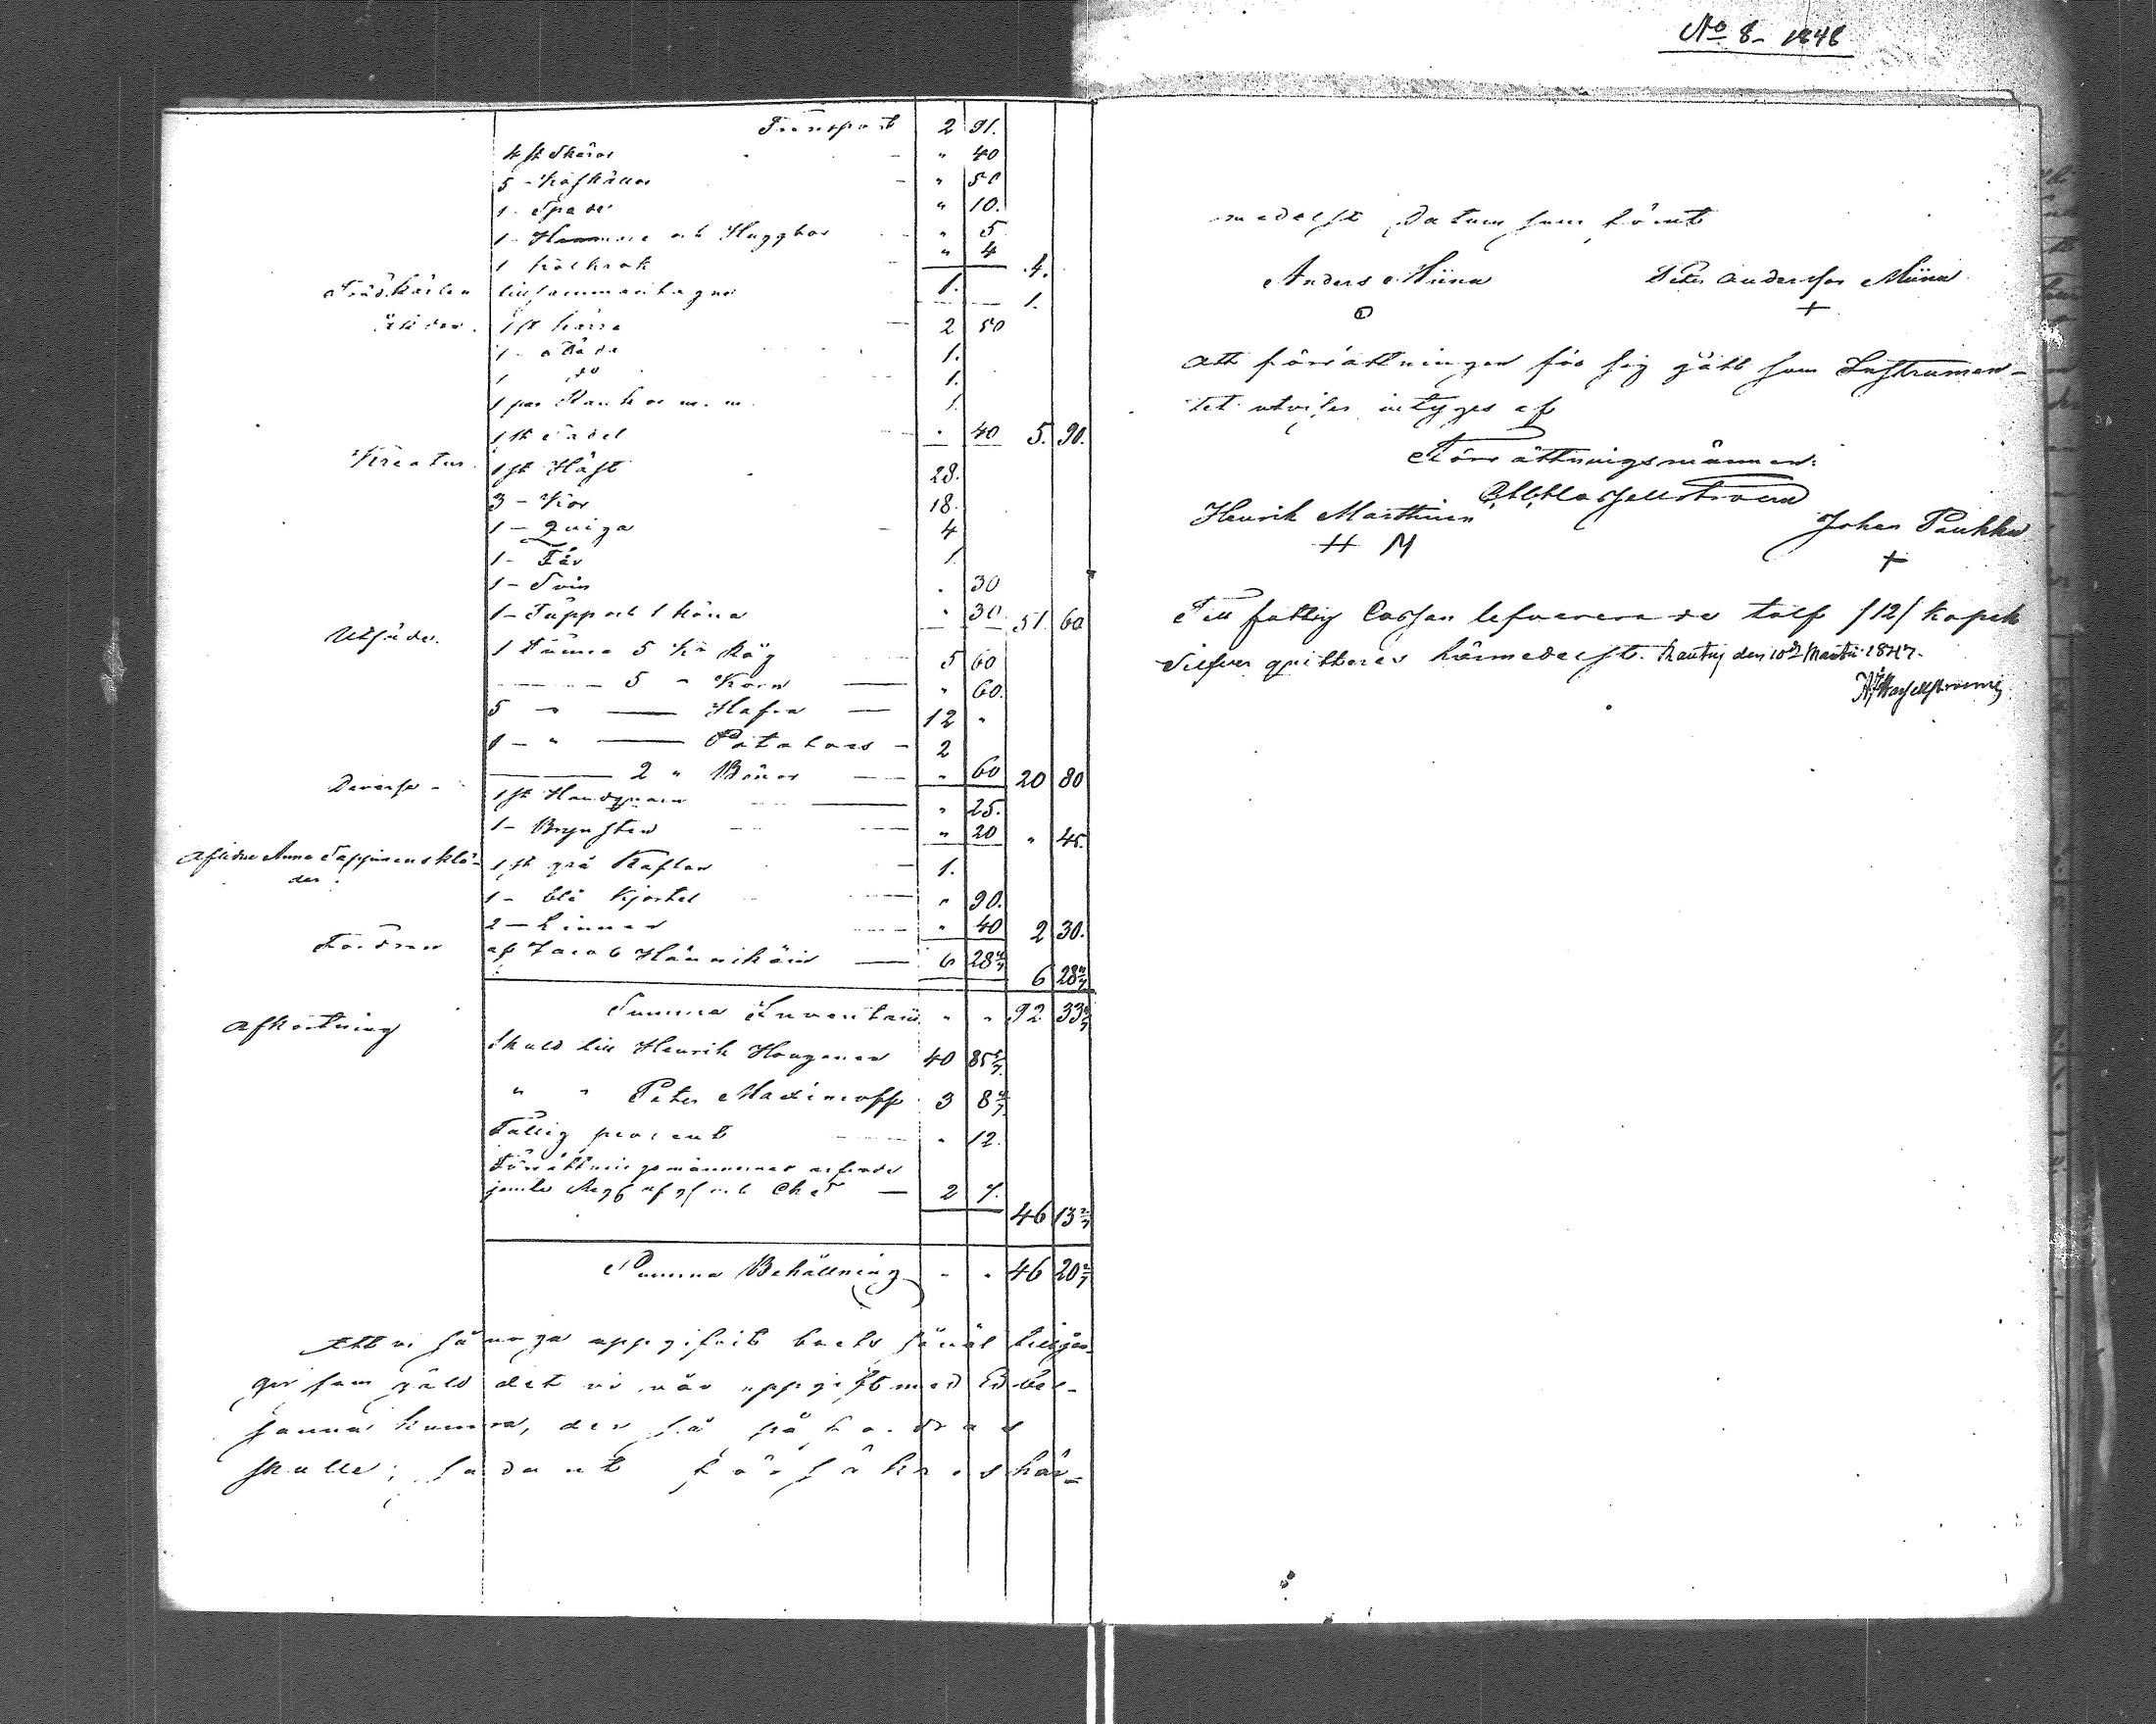 No 8 - 1848
Transport 2 91.
4 st Skäror " 40
5 - " 50
1 - Spade " 10.
1 - och Huggbor " 5
1 " 4 4.
Trädkärilen tillsammantagne 1. 1.
Åkdon. 1 st kärra 2 50
1 - Släde 1.
1 do 1.
1 par m. m. 1.
1 st Sadel " 40 5. 90.
Kreatur. 1 st Häst 28.
3 - Kor 18.
1 - Quiga 4
1 - Får 1.
1 - Svin . 30
1 - Tupp och 1 höna " 30. 51. 60
Utsäde. 1 Tunna 5 kr Råg 5 60
5 " Korn " 60.
5 " Hafra 12 "
1 - " Potatoes - 2
2 " Bönor " 60 20 80
Diverse - 1 st Handqvarn " 25.
1 - Brynsten " 20 " 45.
Aflidne Anna Tappinens klä-
der. 1 st grå Kaftan 1.
1 - blå Kjortel " 90.
2 - Linnen " 40 2 30.
Fordran af Jacob Hännikäin 6 28 4/7 6 28 4/7
Summa Inventarii " " 92 33 4/7
Afkortning
Skuld till Henrik Houganen 40 85 5/7
" " Peter Maximoff 3 8 4/7
Fattig procent " 12.
Förrättningsmännernas arfvode
jemte och 2 7.
46 13 2/7
Summa Behållning " " 46 20 2/7
Att vi så noga uppgifvit boets såväl tillgån-
gar som gäld att vi vår uppgift med Ed be-
sanna kunna, der så påfordras
skulle; sådant försäkras här-
medelst Datum som förut
Anders Miina Peter Andersson Miina
+
Att förrättningen för sig gått som Instrumen-
tet utvisar intyges af
Förrättningsmännen.
Hasselström
Henrik Marttinen Johan Paukku
H M +
Till fattig Cassan lefvererade tolf /12/ kopek
Silfver qvitteras härmedelst. Rautus den 10de Martii 1847.
Hasselström